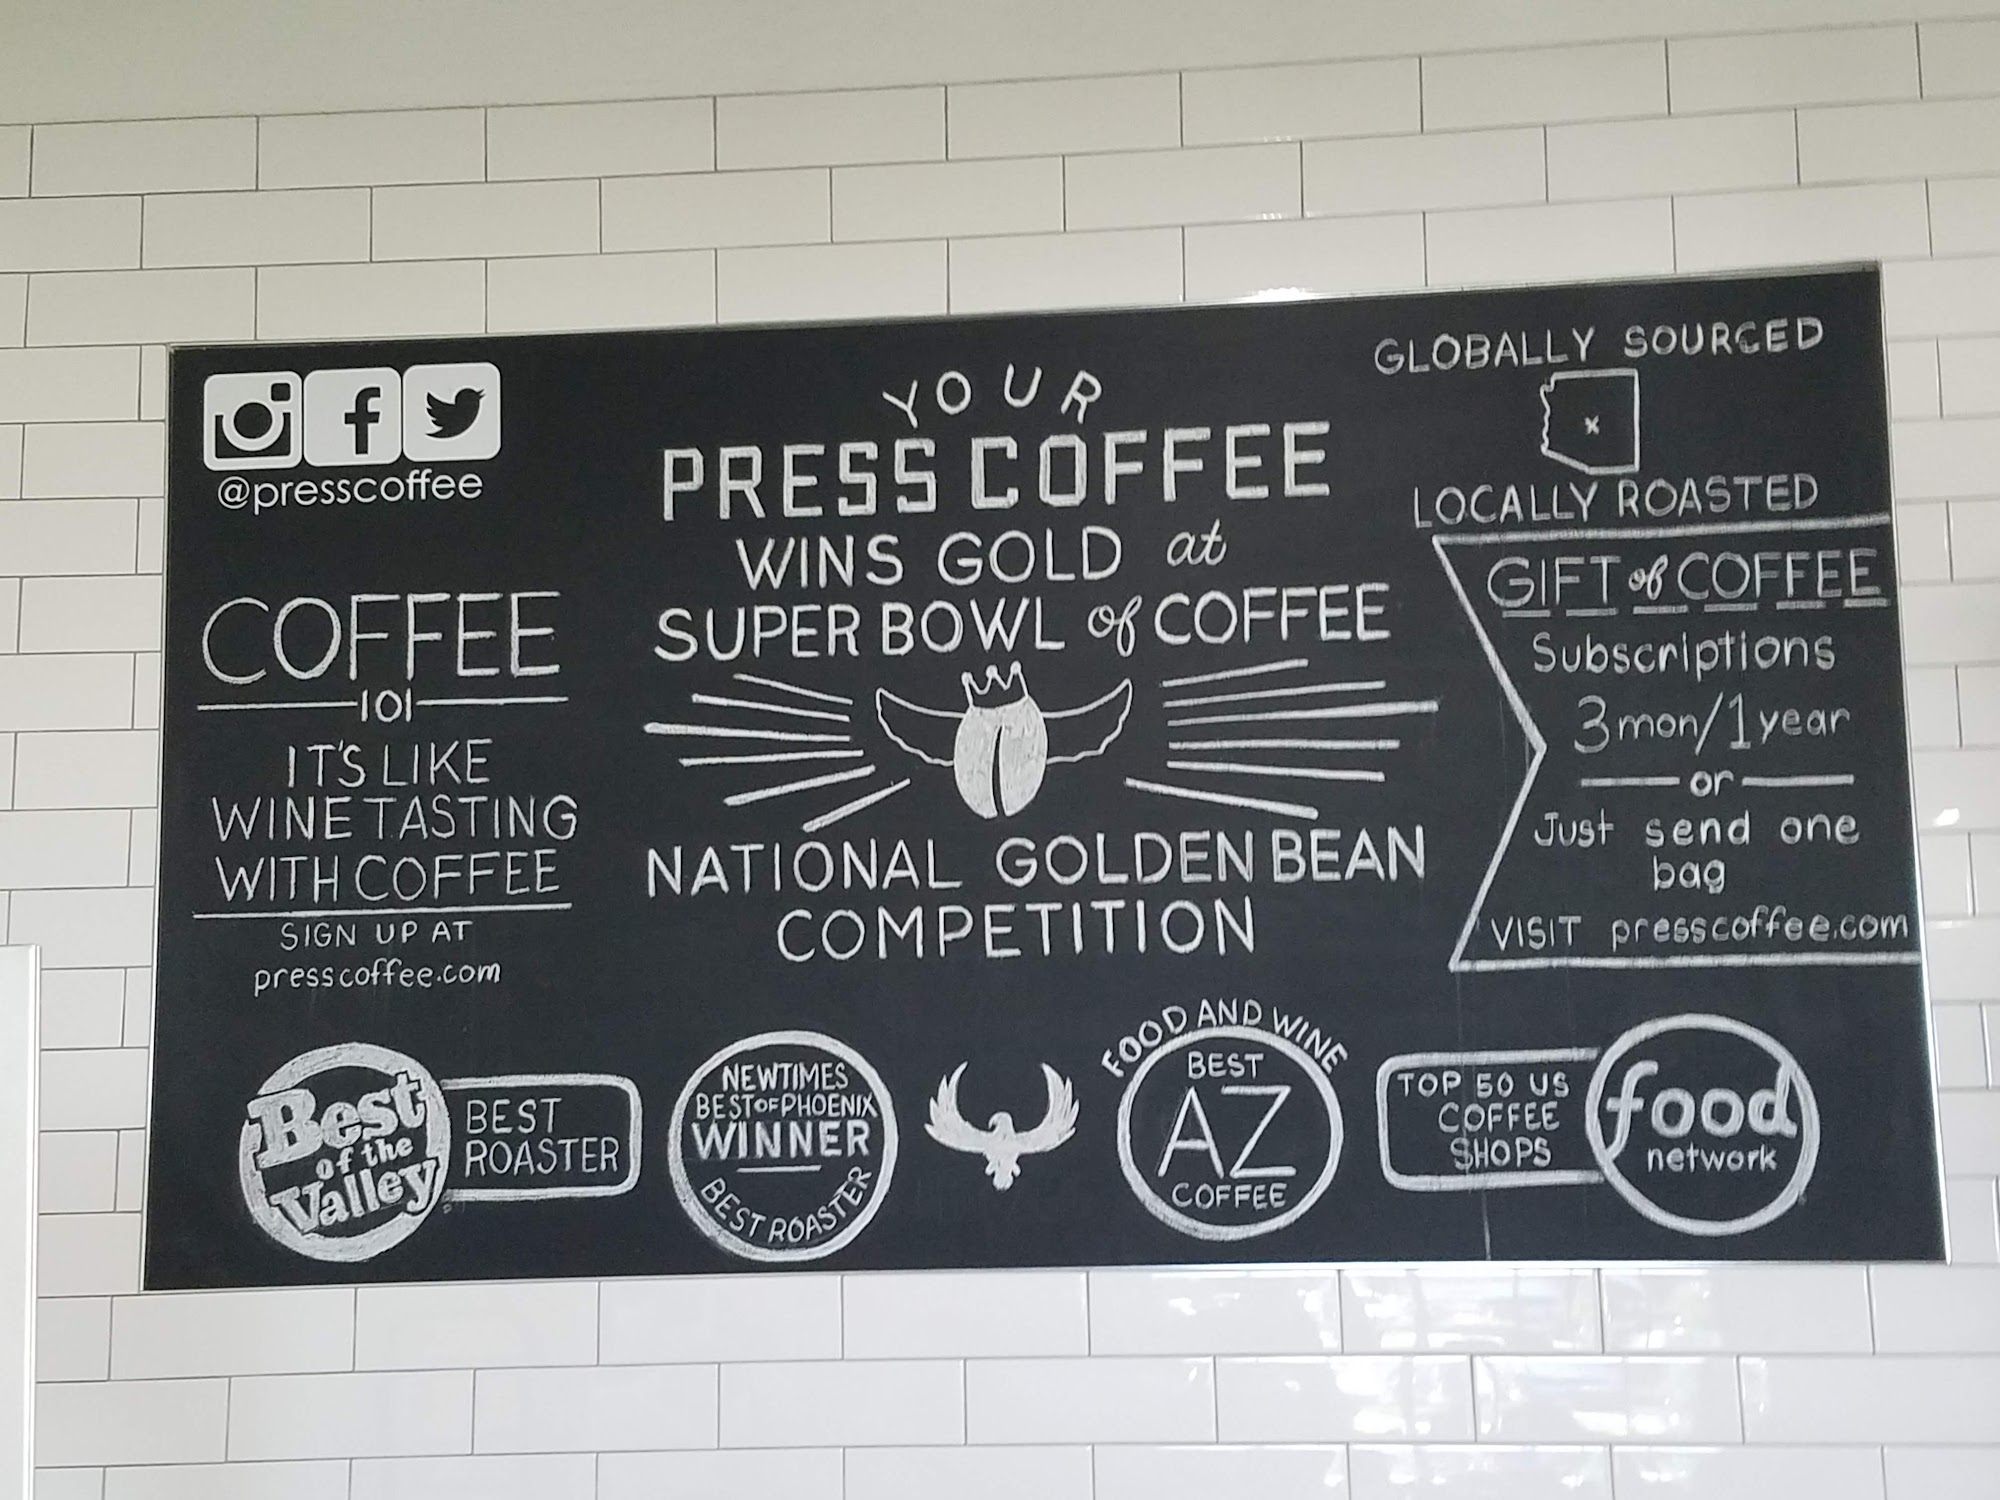 @presscoffee
COFFEE
101
IT'S LIKE
WINE TASTING
WITH COFFEE
SIGN UP AT
presscoffee.com
YOUR
PRESS COFFEE
WINS GOLD at
SUPER BOWL of COFFEE
NATIONAL GOLDEN BEAN
COMPETITION
GLOBALLY SOURCED
x
LOCALLY ROASTED
GIFT of COFFEE
Subscriptions
3mon/1year
or
Just send one
bag
VISIT presscoffee.com
Best
of the
Valley
BEST
ROASTER
NEWTIMES
BEST OF PHOENIX
WINNER
BEST ROASTER
FOOD AND WINE
BEST
AZ
COFFEE
TOP 50 US
COFFEE
SHOPS
food
network